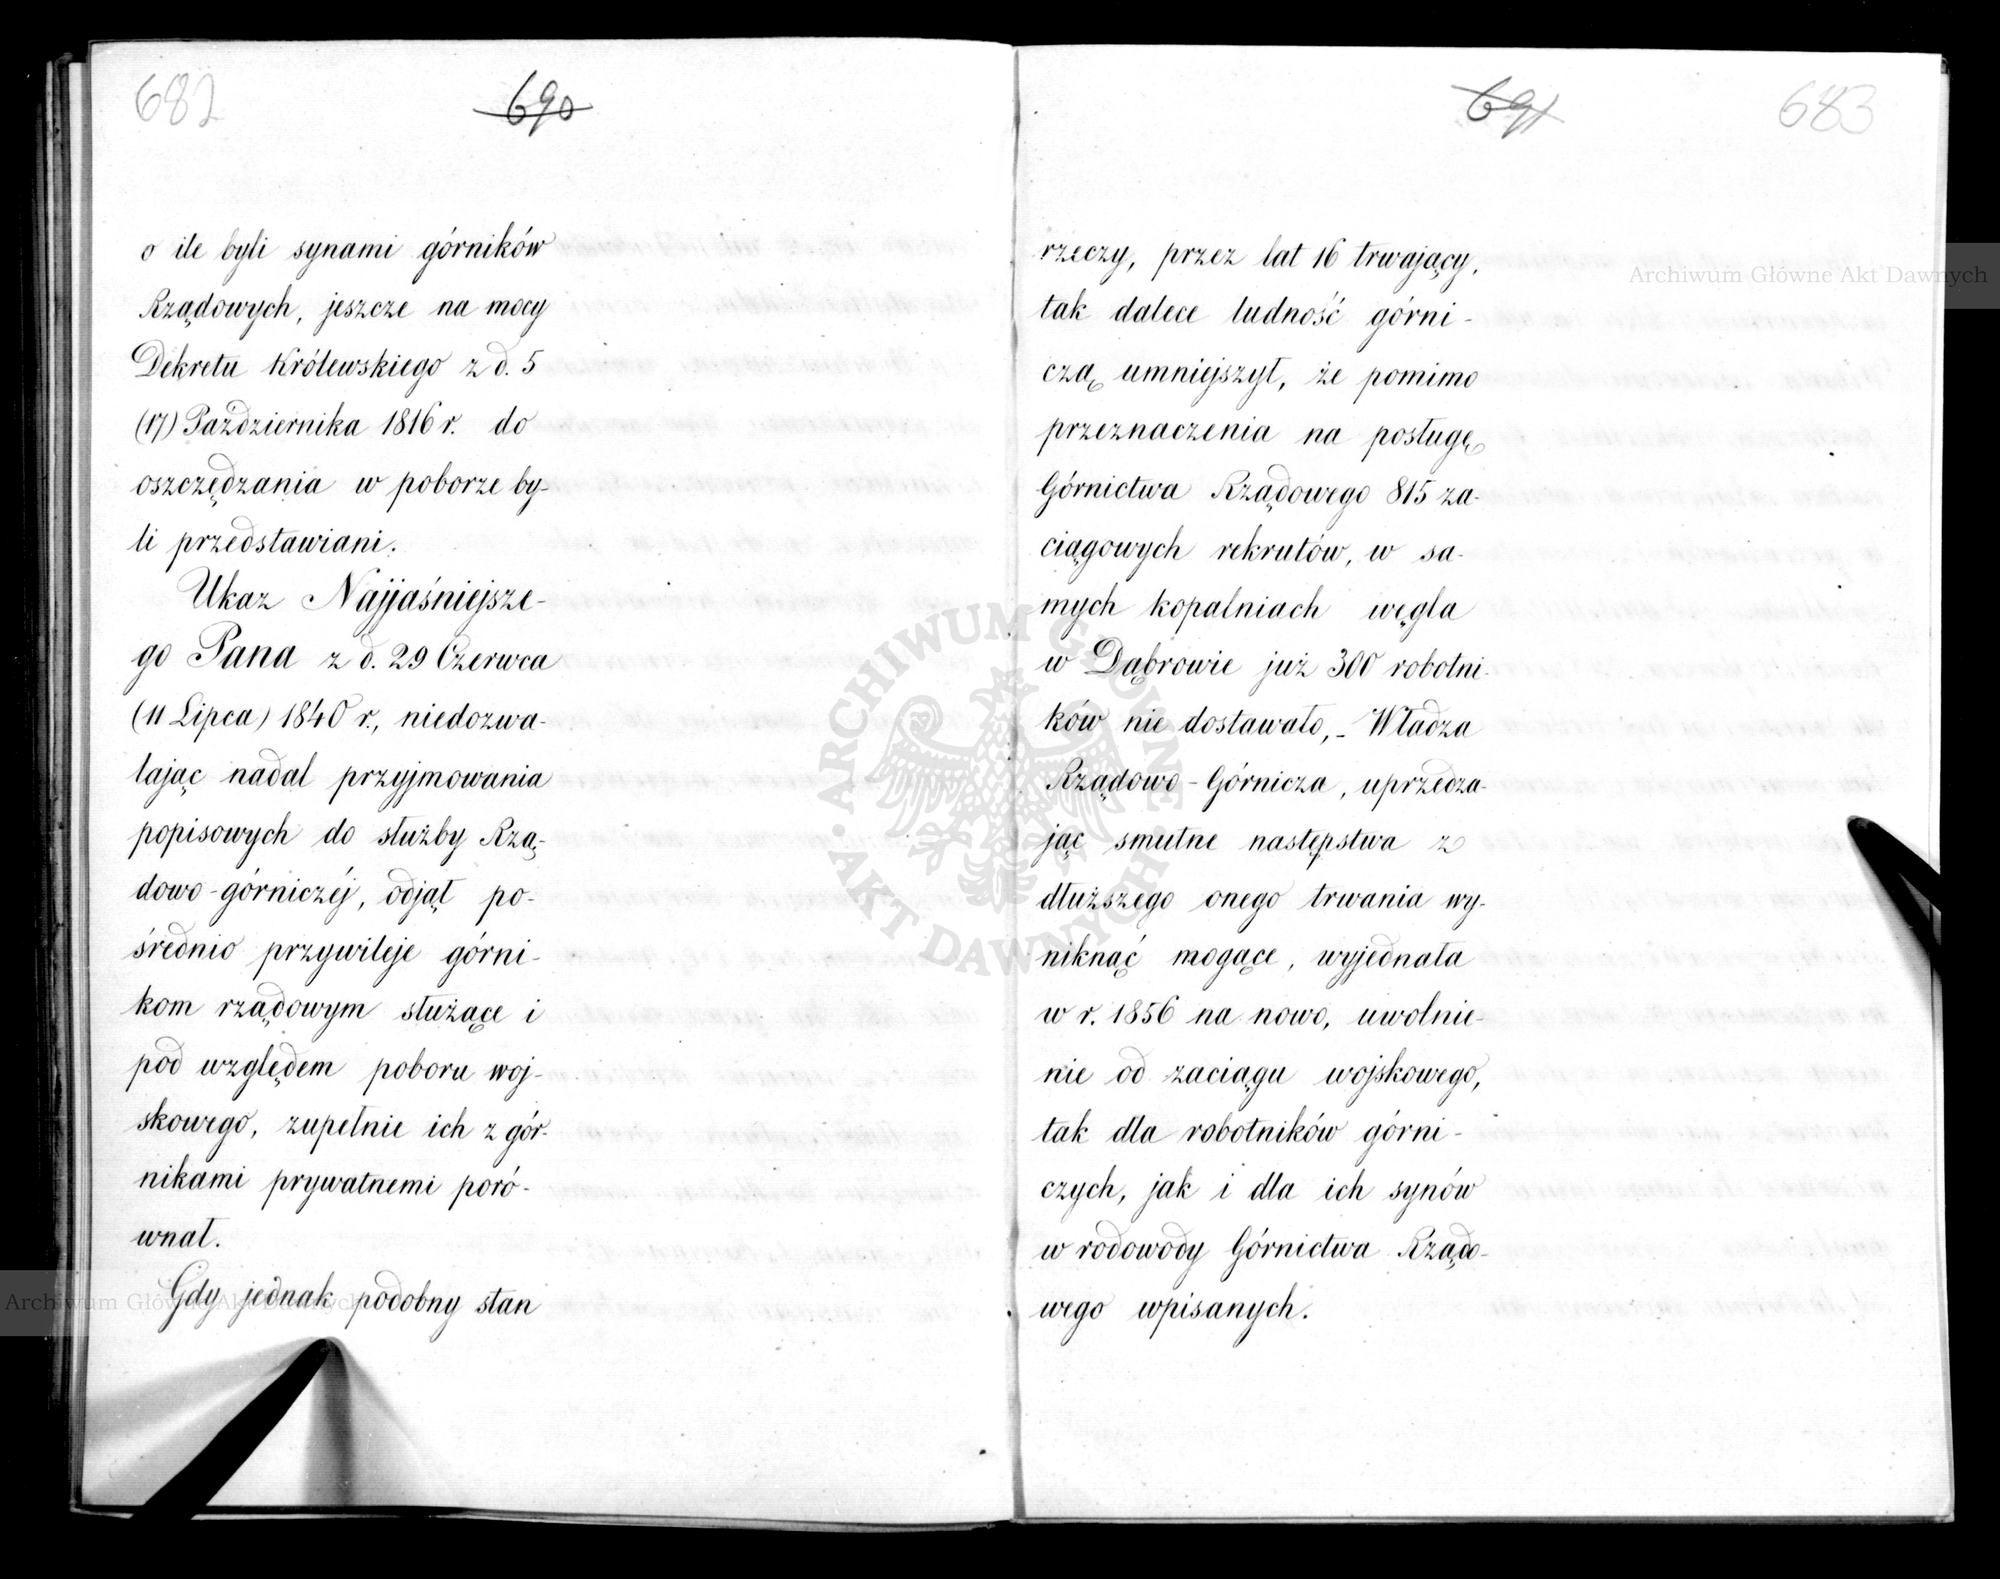 682
690
o ile byli synami górników
Rządowych, jeszcze na mocy
Dekretu Królewskiego z d. 5
(17) Października 1816 r. do
oszczędzania w poborze by-
li przedstawiani.
Ukaz Najjaśniejsze-
go Pana z d. 29 Czerwca
(11 Lipca) 1840 r., niedozwa-
lając nadal przyjmowania
popisowych do służby Rzą-
dowo-górniczéj, odjął po-
średnio przywileje górni-
kom rządowym służące i
pod względem poboru woj-
skowego, zupełnie ich z gór-
nikami prywatnemi poró-
wnał.
Gdy jednak podobny stan
691
683
rzeczy, przez lat 16 trwający,
tak dalece ludność górni-
czą umniejszył, że pomimo
przeznaczenia na posługę
Górnictwa Rządowego 815 za-
ciągowych rekrutów, w sa-
mych kopalniach węgla
w Dąbrowie już 300 robotni-
ków nie dostawało, - Władza
Rządowo-Górnicza, uprzedza-
jąc smutne następstwa z
dłuższego onego trwania wy-
niknąć mogące, wyjednała
w r. 1856 na nowo, uwolnie-
nie od zaciągu wojskowego,
tak dla robotników górni-
czych, jak i dla ich synów
w rodowody Górnictwa Rządo-
wego wpisanych.
Archiwum Główne Akt Dawnych
Archiwum Główne Akt Dawnych
ARCHIWUM GŁÓWNE
AKT DAWNYCH